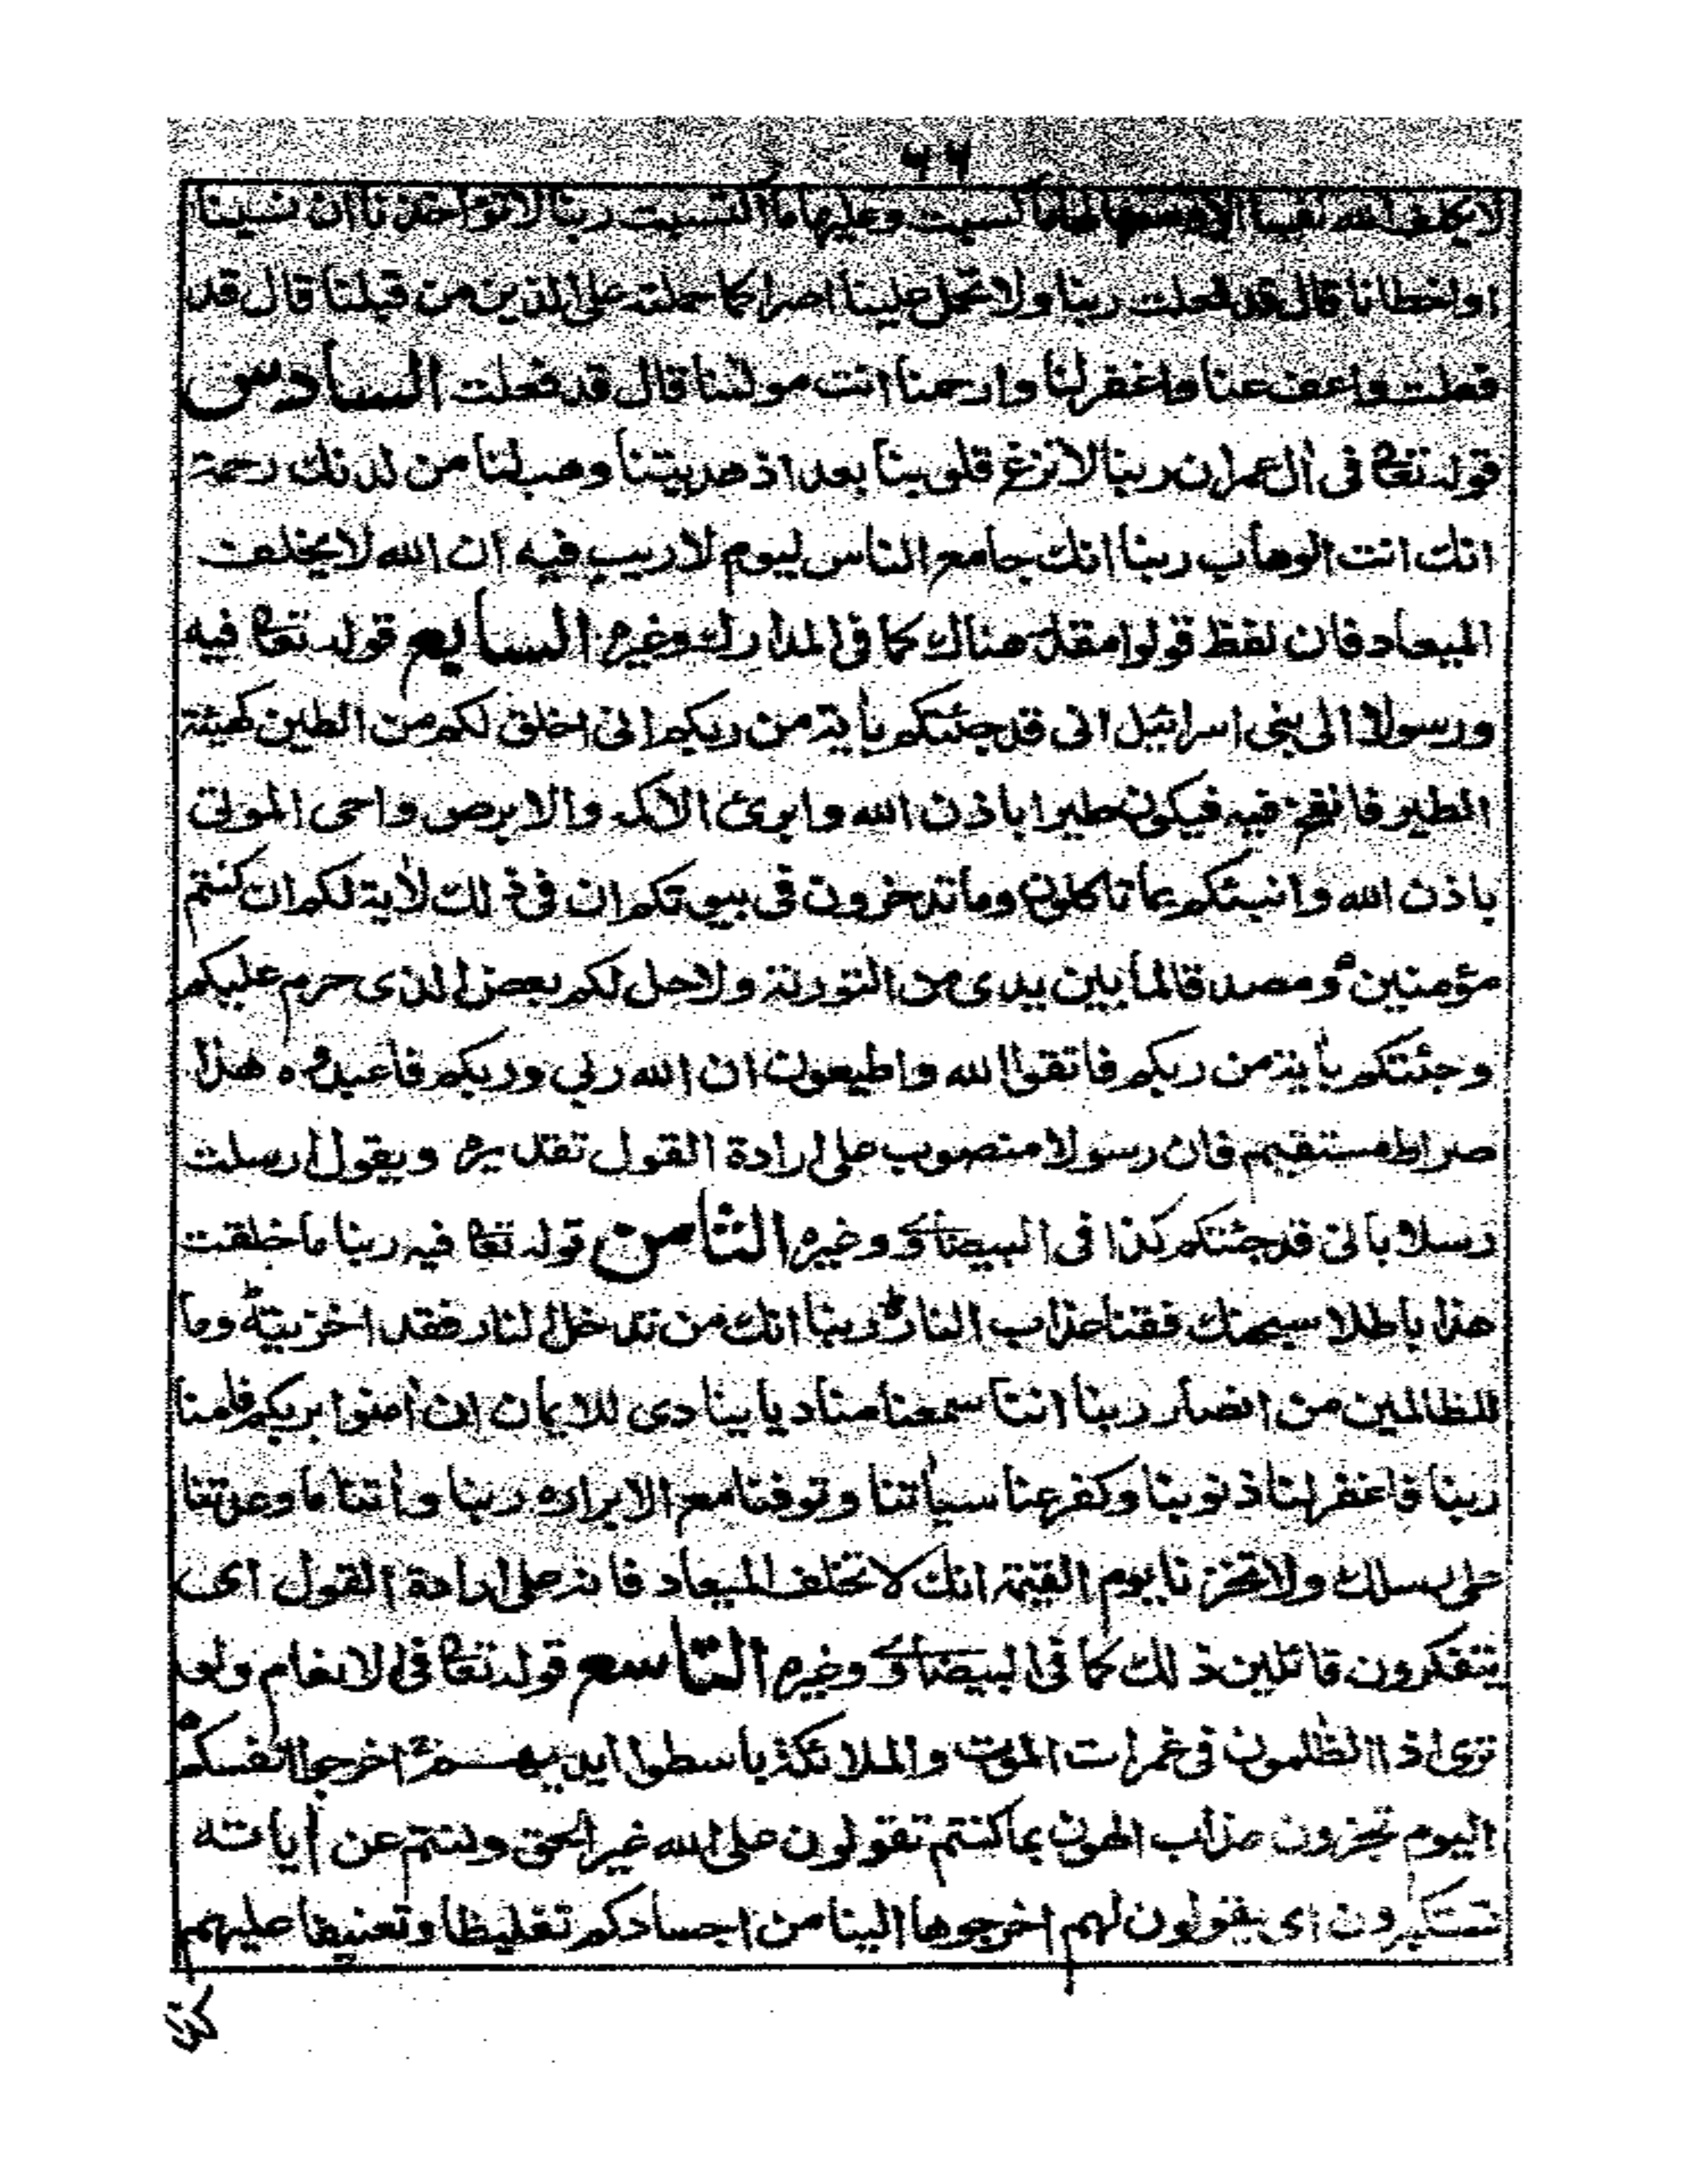 ٦٦
لا يكلف الله نفسا الا وسعها لها ما كسبت وعليها ما اكتسبت ربنا لا تؤاخذنا ان نسينا
او اخطانا قال قد فعلت ربنا ولا تحمل علينا اصرا كما حملته على الذين من قبلنا قال قد
فعلت واعف عنا واغفر لنا وارحمنا انت مولٰنا قال قد فعلت السادس
قوله تعا فى اٰل عمران ربنا لا تزغ قلوبنا بعد اذ هديتنا وهب لنا من لدنك رحمة
انك انت الوهاب ربنا انك جامع الناس ليوم لا ريب فيه ان الله لا يخلف
الميعاد فان لفظ قولوا مقدر هناك كما فى المدارك وغيره السابع قوله تعا فيه
ورسولا الى بنى اسرائيل انى قد جئتكم بأية من ربكم انى اخلق لكم من الطين كهيئة
الطير فانفخ فيه فيكون طيرا باذن الله وابرئ الاكمه والابرص واحى الموتى
باذن الله وانبئكم بما تاكلون وما تدخرون فى بيوتكم ان فى ذلك لأية لكم ان كنتم
مؤمنين ومصدقا لما بين يدى من التورىة ولاحل لكم بعض الذى حرم عليكم
وجئتكم بأية من ربكم فاتقوا لله واطيعون ان الله ربي وربكم فاعبدوه هذا
صراط مستقيم فان رسولا منصوب على ارادة القول تقديره ويقول ارسلت
رسلا بانى قد جئتكم كذا فى البيضاوى وغيره الثامن قوله تعا فيه ربنا ما خلقت
هذا باطلا سبحنك فقنا عذاب النار ربنا انك من تدخل النار فقد اخزيته وما
للظالمين من انصار ربنا اننا سمعنا مناديا ينادى للايمان ان أمنوا بربكم فامنا
ربنا فاغفر لنا ذنوبنا وكفر عنا سيأتنا وتوفنا مع الابرار ربنا وأتنا ما وعدتنا
على رسلك ولا تخزنا يوم القيمة انك لا تخلف الميعاد فانه على ارادة القول اى
يتفكرون قائلين ذلك كما فى البيضاوى وغيره التاسع قوله تعا فى الانعام ولو
ترى اذ الظٰلمون فى غمرات الموت والملائكة باسطوا ايديهم اخرجوا انفسكم
اليوم تجزون عذاب الهون بما كنتم تقولون على الله غير الحق وكنتم عن أياته
تستكبرون اى يقولون لهم اخرجوها الينا من اجسادكم تغليظا وتعنيفا عليهم
كذا